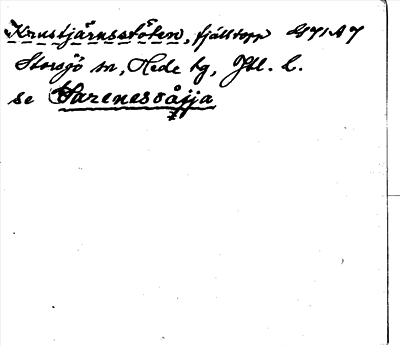 Krustjärnsstöten, fjälltopp
Storsjö sn, Hede tg, Jtl. l.
se Sarenesvåjja